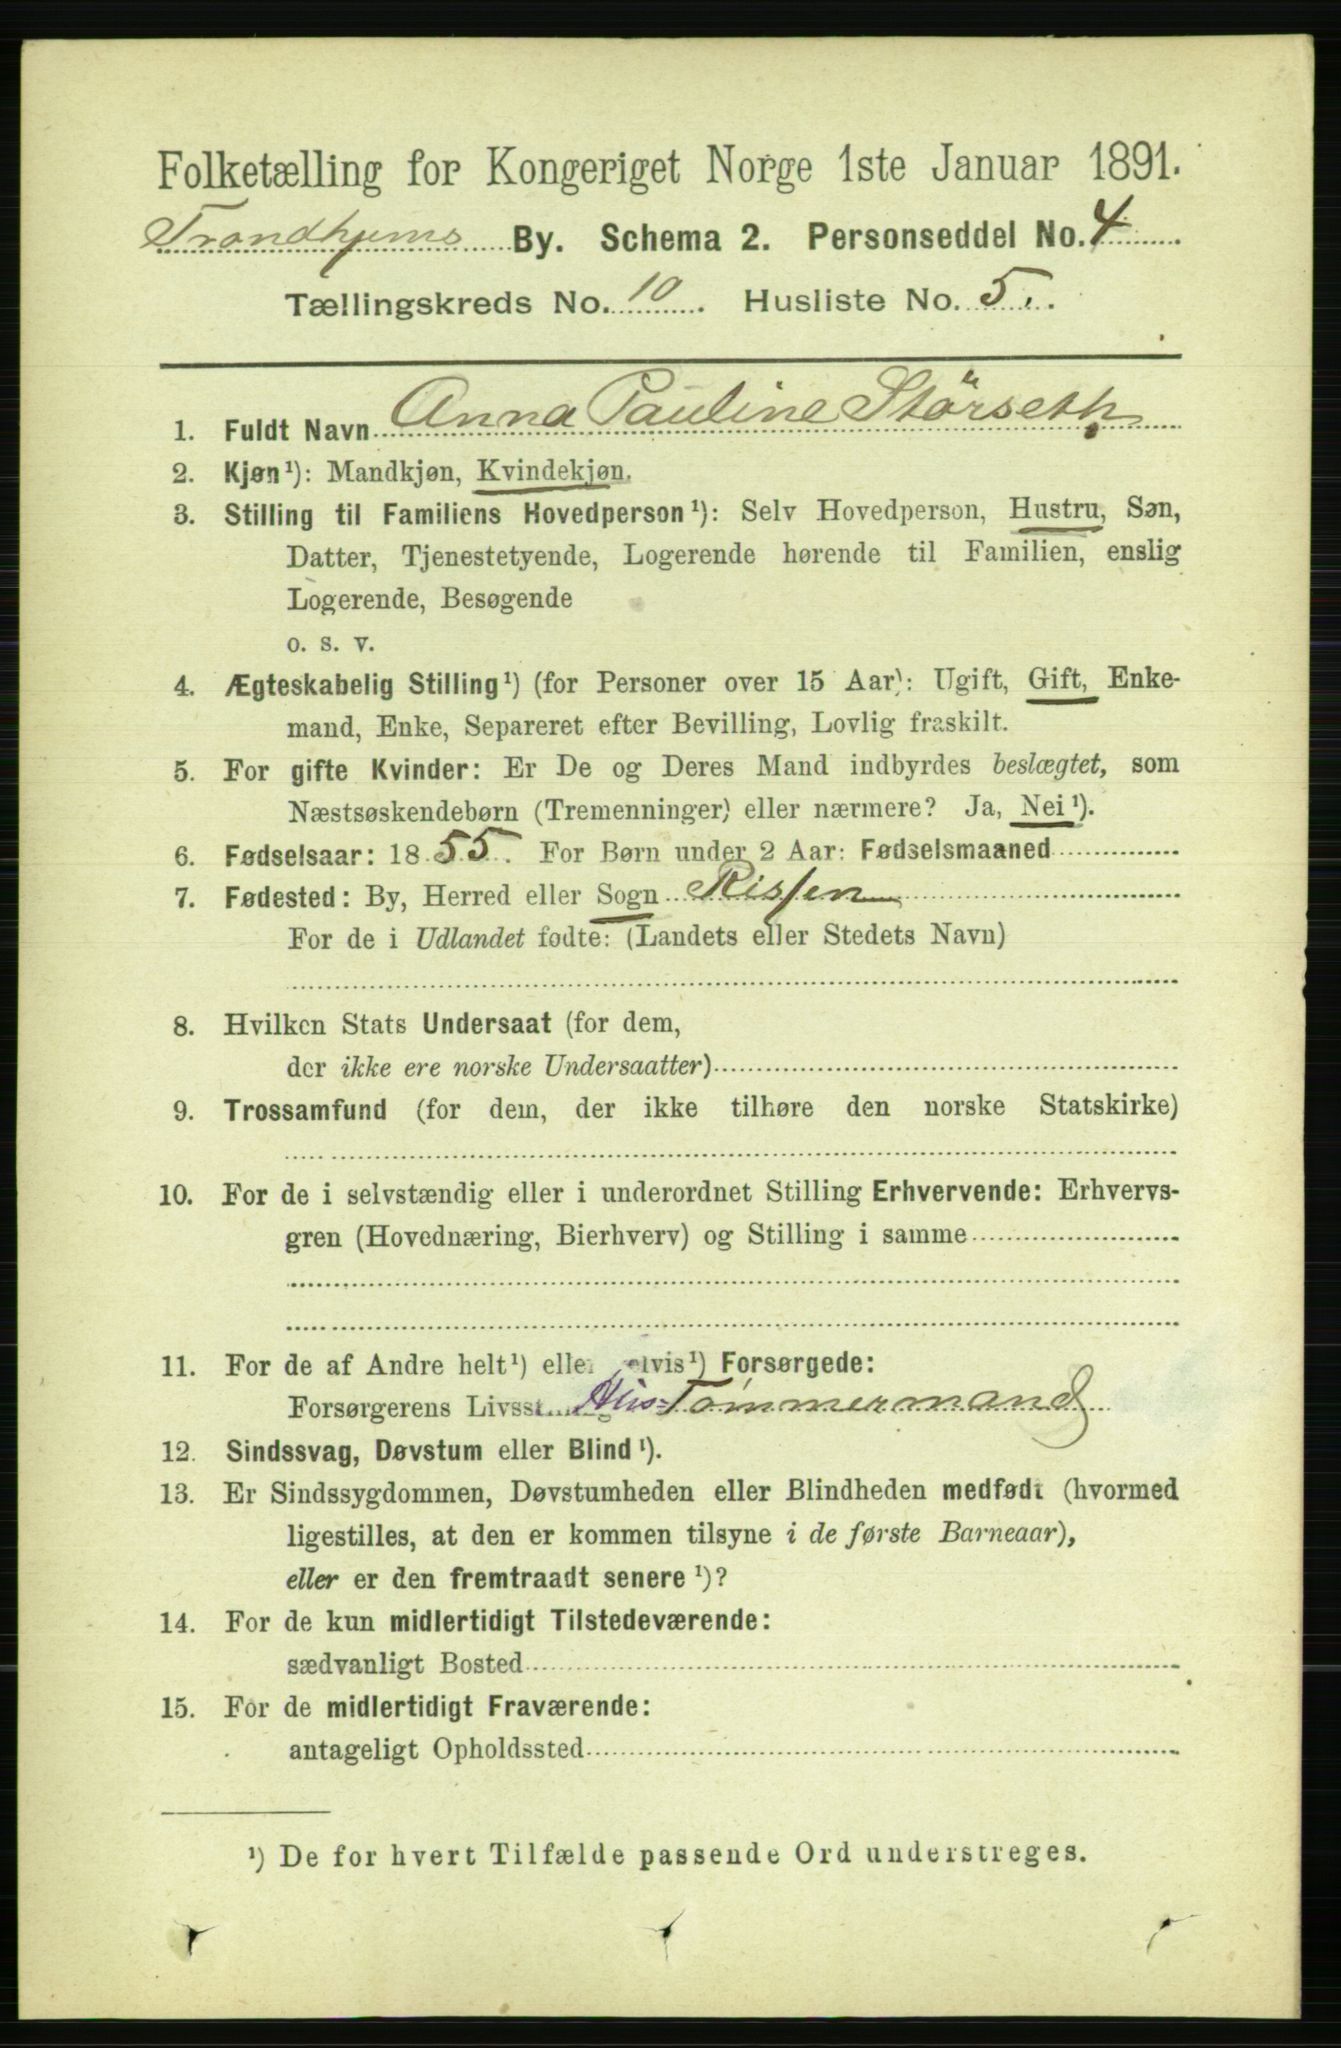 Folketælling for Kongeriget Norge 1ste Januar 1891.
Trondhjems By. Schema 2. Personseddel No. 4
Tællingskreds No. 10. Husliste No. 5.
1. Fuldt Navn Anna Pauline Störseth
2. Kjøn¹): Mandkjøn, Kvindekjøn.
3. Stilling til Familiens Hovedperson¹): Selv Hovedperson, Hustru, Søn,
Datter, Tjenestetyende, Logerende hørende til Familien, enslig
Logerende, Besøgende
o. s. v.
4. Ægteskabelig Stilling¹) (for Personer over 15 Aar): Ugift, Gift, Enke-
mand, Enke, Separeret efter Bevilling, Lovlig fraskilt.
5. For gifte Kvinder: Er De og Deres Mand indbyrdes beslægtet, som
Næstsøskendebørn (Tremenninger) eller nærmere? Ja, Nei¹).
6. Fødselsaar: 1855. For Børn under 2 Aar: Fødselsmaaned
7. Fødested: By, Herred eller Sogn Rissen
For de i Udlandet fødte: (Landets eller Stedets Navn)
8. Hvilken Stats Undersaat (for dem,
der ikke ere norske Undersaatter)
9. Trossamfund (for dem, der ikke tilhøre den norske Statskirke)
10. For de i selvstændig eller i underordnet Stilling Erhvervende: Erhvervs-
gren (Hovednæring, Bierhverv) og Stilling i samme
11. For de af Andre helt¹) eller delvis¹) Forsørgede:
Forsørgerens Livsstilling Hus-Tømmermand
12. Sindssvag, Døvstum eller Blind¹).
13. Er Sindssygdommen, Døvstumheden eller Blindheden medfødt (hvormed
ligestilles, at den er kommen tilsyne i de første Barneaar),
eller er den fremtraadt senere¹)?
14. For de kun midlertidigt Tilstedeværende:
sædvanligt Bosted
15. For de midlertidigt Fraværende:
antageligt Opholdssted
¹) De for hvert Tilfælde passende Ord understreges.